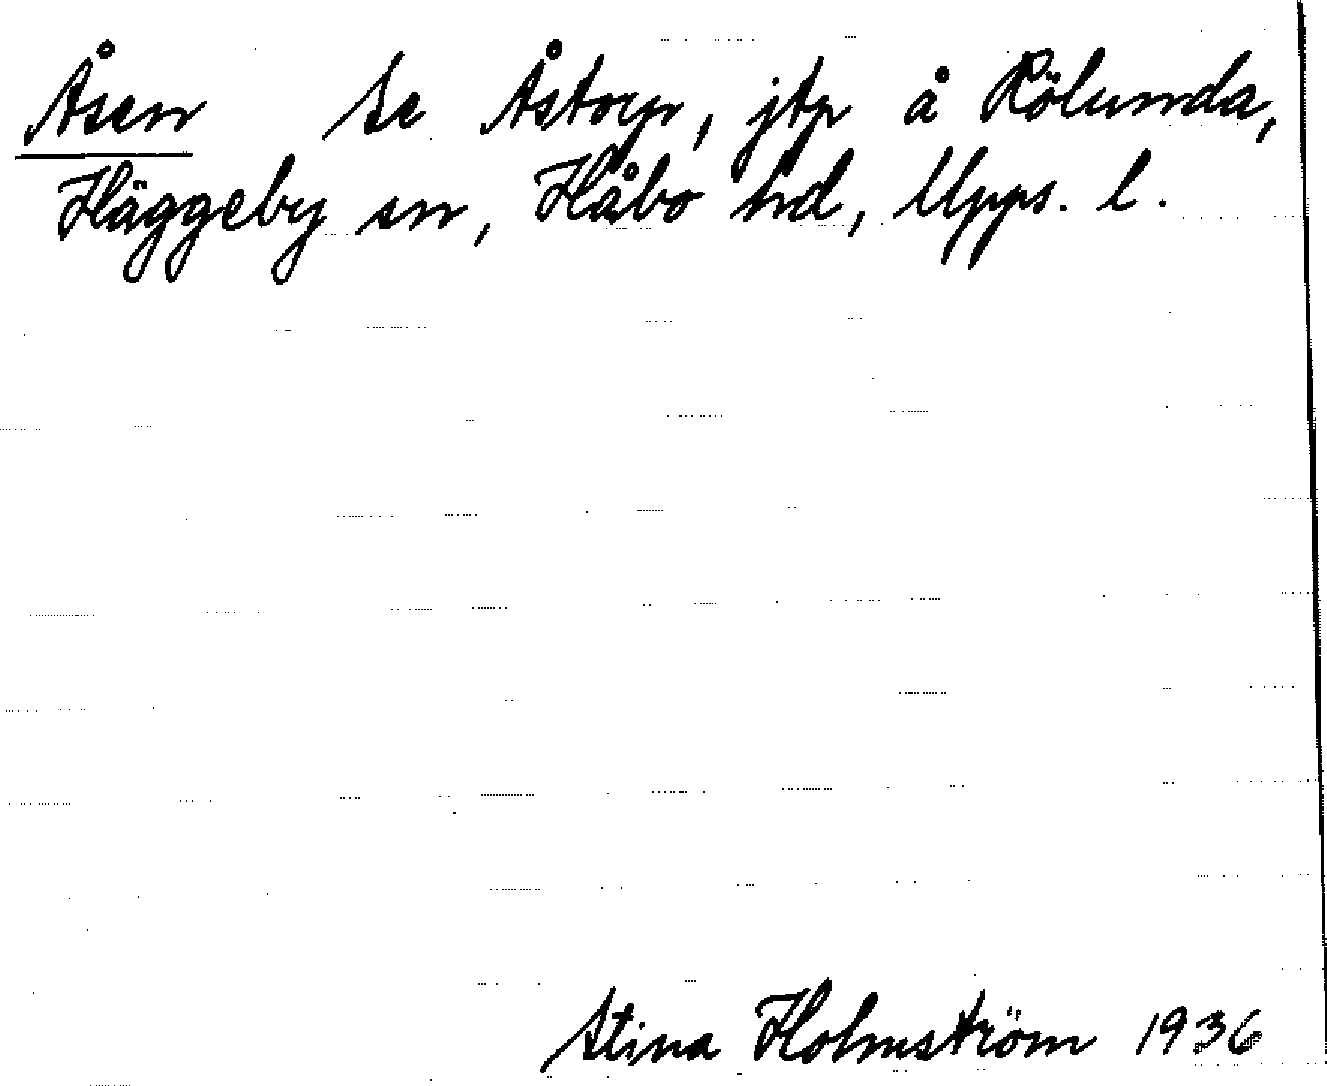 Åsen Se Åstorp, jtp å Rölunda,
Häggeby sn, Håbo hd, Upps. l.
Stina Holmström 1936